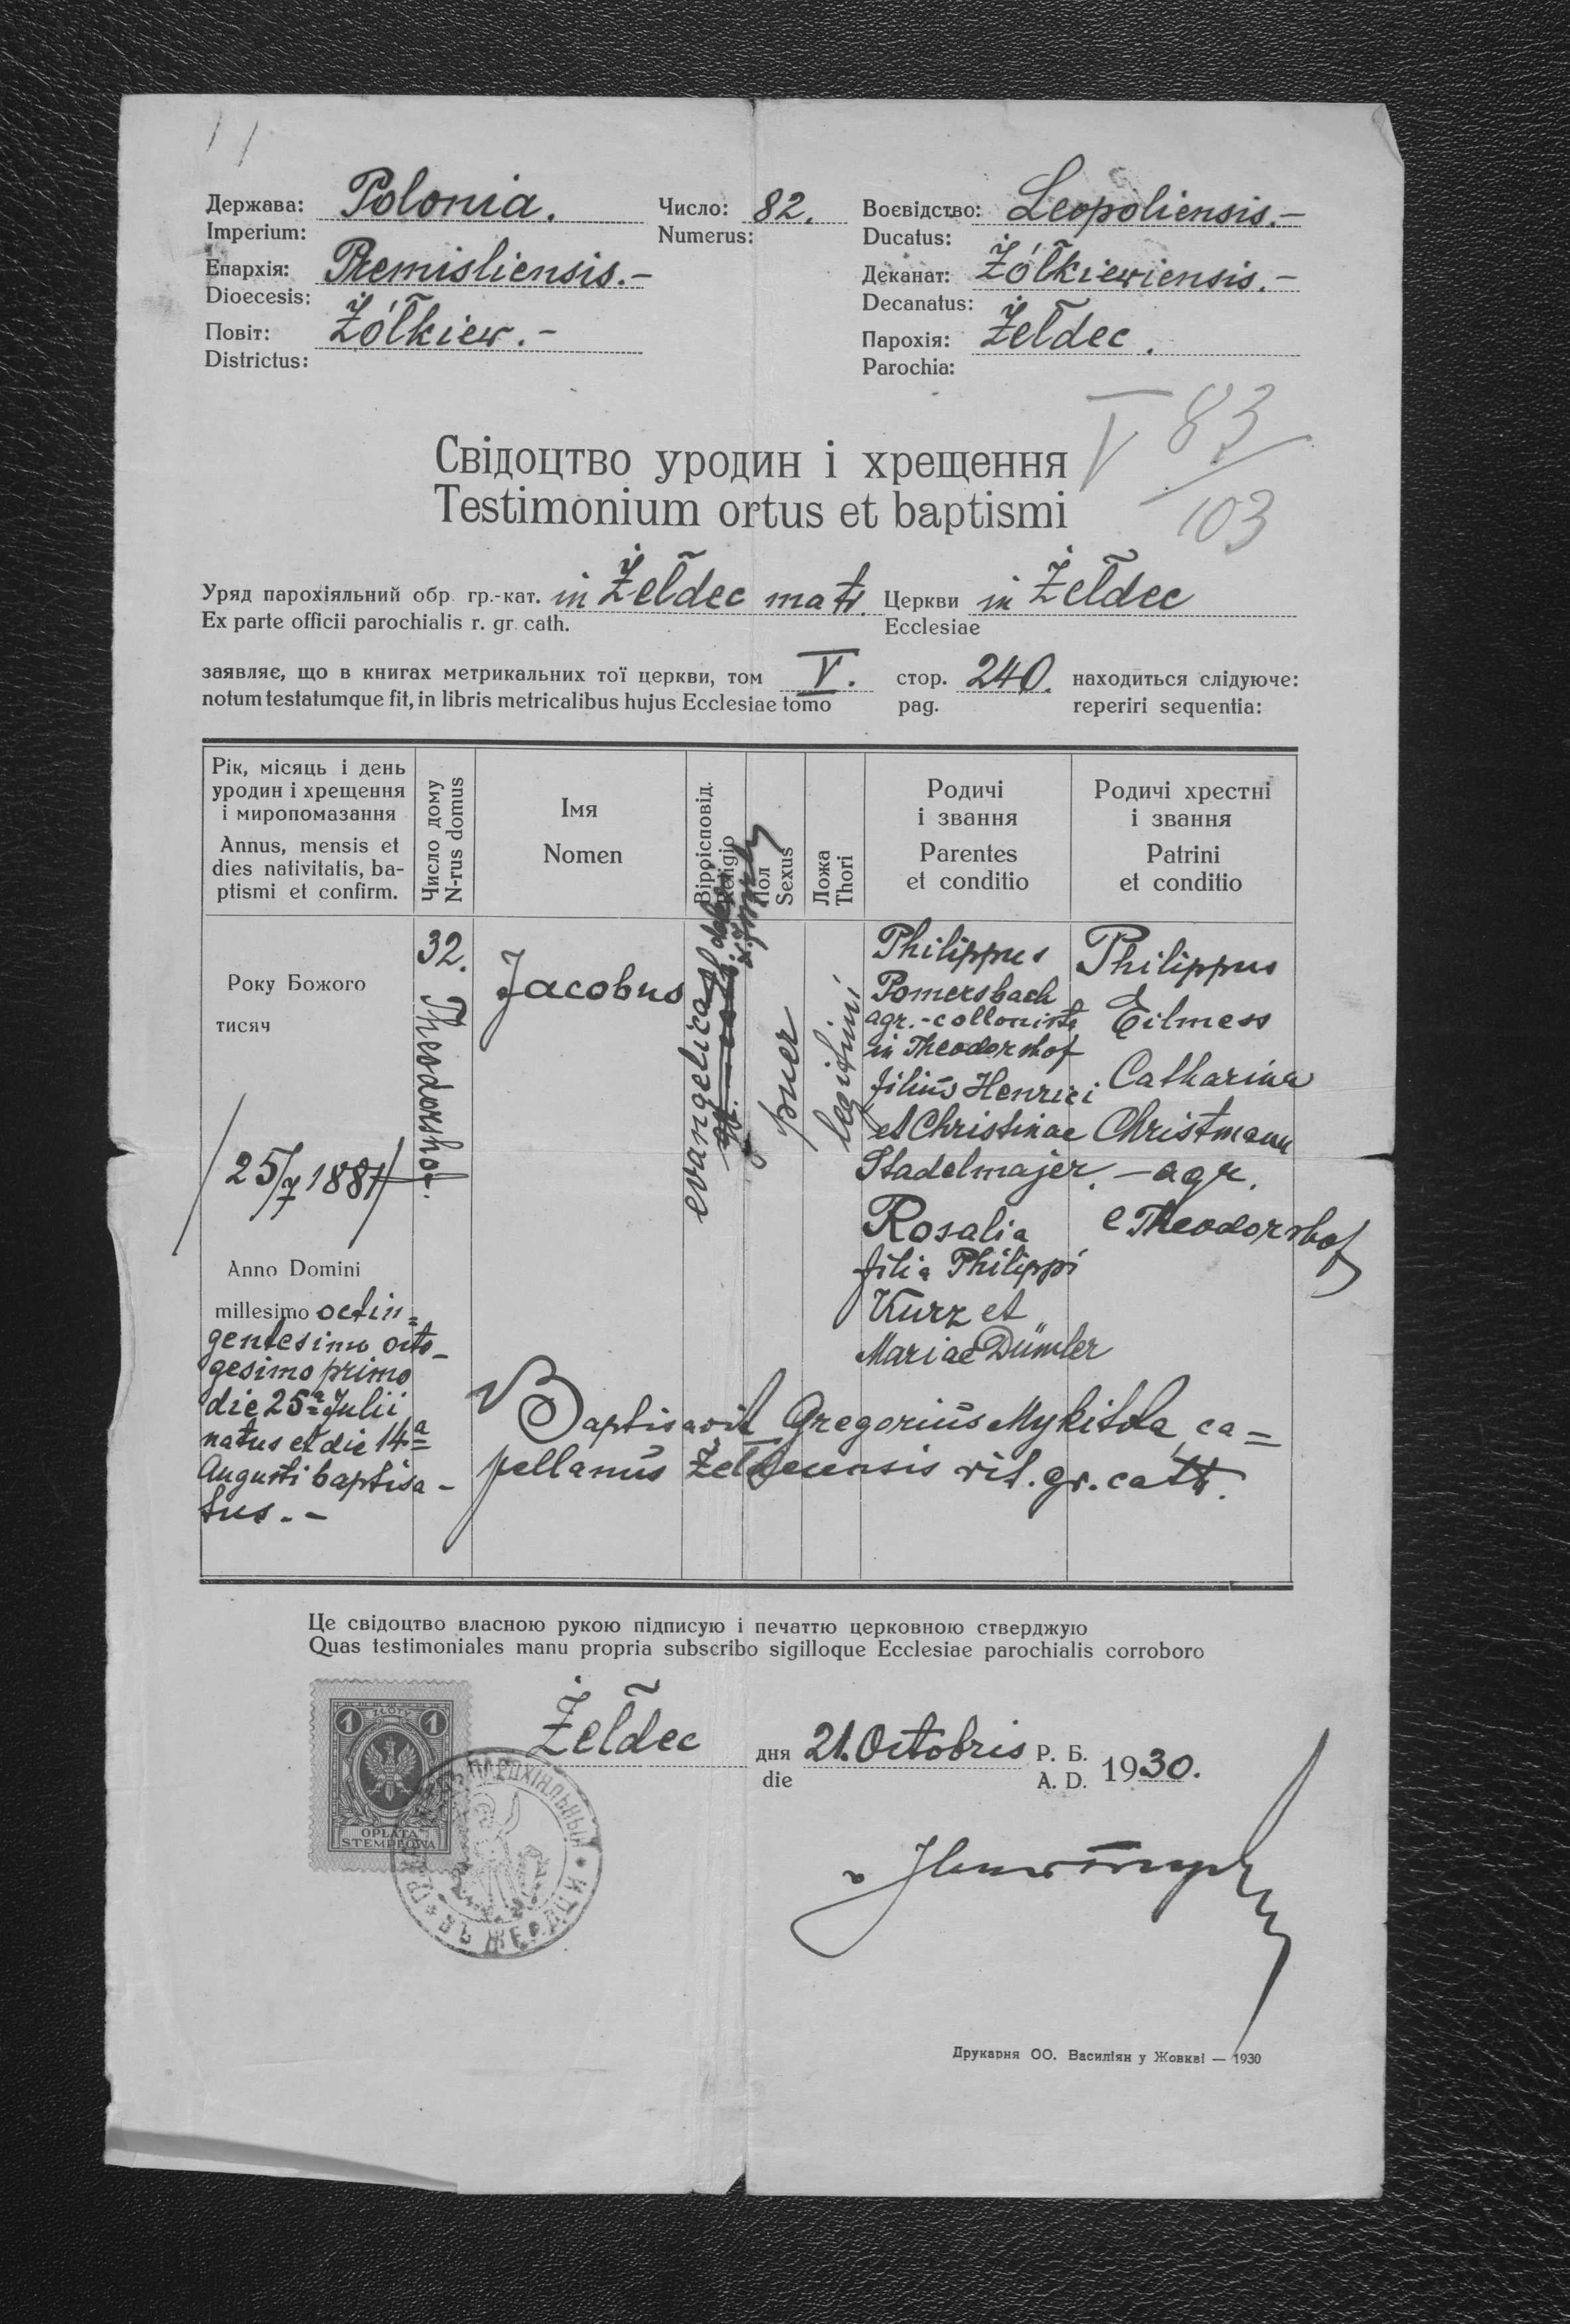 Держава: Polonia. Число: 82. Воєвідство: Leopoliensis.-
Imperium: Numerus: Ducatus:
Епархія: Premisliensis.- Деканат: Żółkiewiensis.-
Dioecesis: Decanatus:
Повіт: Żółkiew.- Парохія: Żełdec.
Districtus: Parochia:
V 83/103
Свідоцтво уродин і хрещення
Testimonium ortus et baptismi
Уряд парохіяльний обр. гр.-кат. in Żełdec matr. Церкви in Żełdec
Ex parte officii parochialis r. gr. cath. Ecclesiae
заявляє, що в книгах метрикальних тої церкви, том V. стор. 240. находиться слідуюче:
notum testatumque fit, in libris metricalibus hujus Ecclesiae tomo pag. reperiri sequentia:
Рік, місяць і день
уродин і хрещення
і миропомазання
Annus, mensis et
dies nativitatis, ba-
ptismi et confirm.
Число дому
N-rus domus
Імя
Nomen
Віроісповід.
Religio
Пол
Sexus
Ложа
Thori
Родичі
і звання
Parentes
et conditio
Родичі хрестні
і звання
Patrini
et conditio
Року Божого
тисяч
25/7 1881
Anno Domini
millesimo octin=
gentesimo octo-
gesimo primo
die 25ª Julii
natus et die 14ª
Augusti baptisa-
tus.-
32.
Theodorshof.
Jacobus
evangelica
puer
legitimi
Philippus
Pomersbach
agr.-collonista
in Theodorshof
filius Henrici
et Christinae
Stadelmajer.
Rosalia
filia Philippi
Kurz et
Mariae Dümler
Philippus
Eilmess
Catharina
Christmann
- agr.
e Theodorshof
Baptisavit Gregorius Mykitka, ca=
pellanus Żeldecensis rit. gr. cath.
Це свідоцтво власною рукою підписую і печаттю церковною стверджую
Quas testimoniales manu propria subscribo sigilloque Ecclesiae parochialis corroboro
1 ZŁOTY 1
OPŁATA
STEMPLOWA
Żełdec дня 21. Octobris Р. Б. 1930.
die A. D.
Друкарня ОО. Василіян у Жовкві — 1930